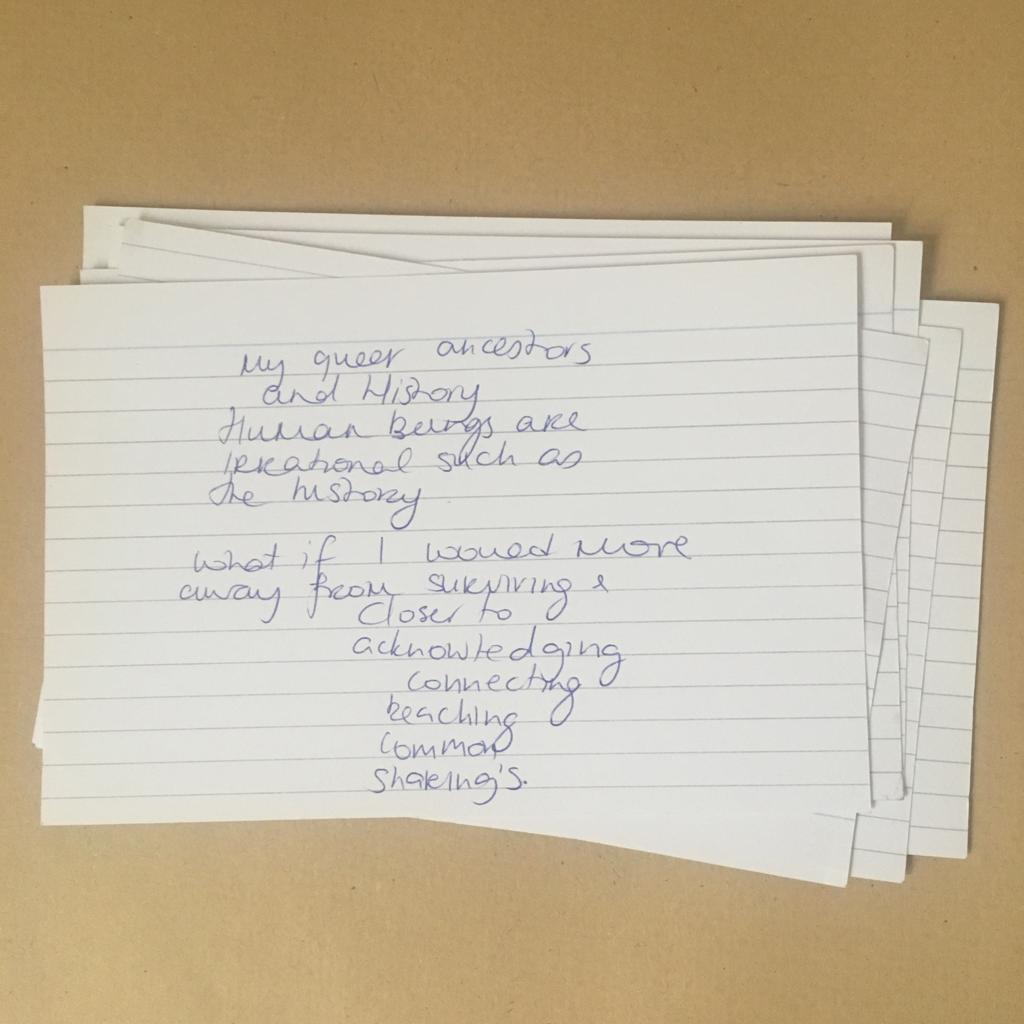 My queer ancestors
and History
Human Beings are
irrational such as
the history
what if I would move
away from surviving &
closer to
acknowledging
connecting
Reaching
common
sharing's.